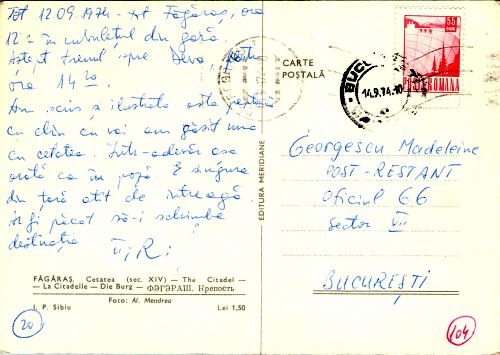 Tot 12.09.1974 - tot Făgăraș, ora
12 - în cubulețul din gară
Aștept trenul spre Deva, pentru
ora 14
Am scris o ilustrată asta pentru
că din ce vai am găsit una
cu cetatea. Într-adevăr așa
arată ca în poză. E singura
din țară atât de întreagă.
Ar fi păcat să-i schimbe
destinația
CARTE
POȘTALĂ
BUCUREȘTI
14.9.74.-10
55
BANI
POSTA ROMANA
EDITURA MERIDIANE
Georgescu Madeleine
POST-RESTANT
Oficiul 66
sector VII
BUCUREȘTI
FĂGĂRAȘ. Cetatea (sec. XIV) — The Citadel —
— La Citadelle — Die Burg — ФЭГЭРАШ. Крепость
Foto: Al. Mendrea
I. P. Sibiu Lei 1,50
20
104